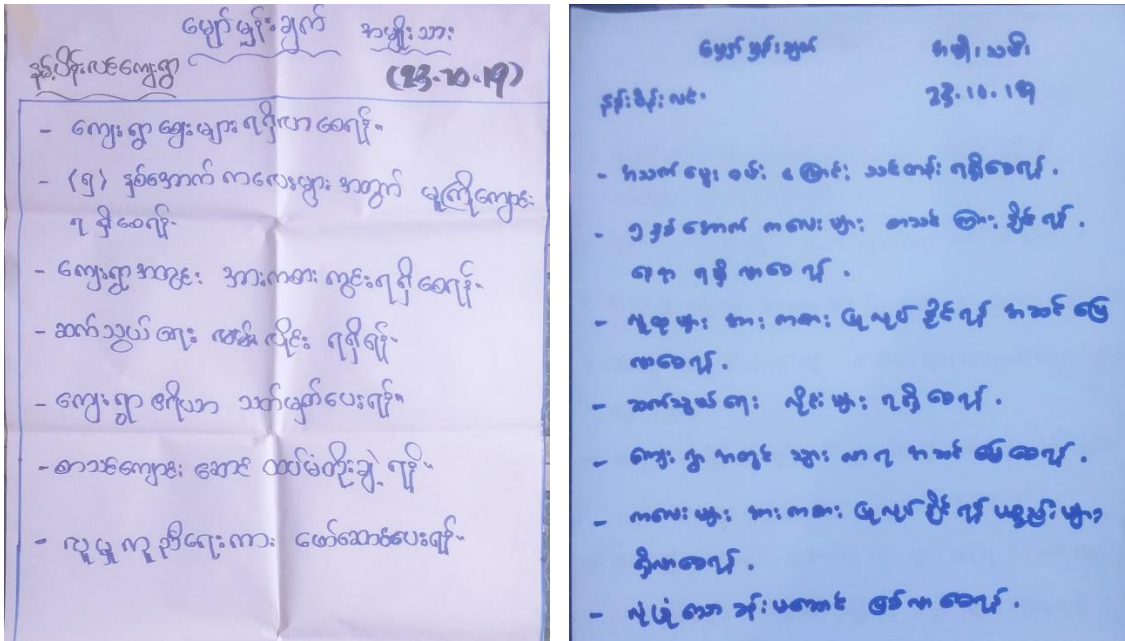 မျှော်မှန်းချက် အမျိုးသား
နမ့်ပိန်းလင်ကျေးရွာ (23.10.19)
- ကျေးရွာ ဈေးများ ရရှိလာစေရန်။
- (၅) နှစ်အောက် ကလေးများ အတွက် မူကြိုကျောင်း
ရရှိစေရန်။
- ကျေးရွာအတွင်း အားကစားကွင်းရရှိစေရန်။
- ဆက်သွယ်ရေး လိုင်း ရရှိရန်။
- ကျေးရွာ ဧရိယာ သတ်မှတ်ပေးရန်။
- စာသင်ကျောင်း ဆောင် ထပ်မံတိုးချဲ့ရန်။
- လူမှုကူညီရေးကား ဖော်ဆောင်ပေးရန်။
မျှော်မှန်းချက် အမျိုးသမီး
23.10.19
- အသက်မွေးဝမ်းကြောင်း သင်တန်း ရရှိစေရန်.
- ၅နှစ်အောက် ကလေးများ စာသင်ကြားနိုင်ရန်.
နေရာ ရရှိလာစေရန်.
- လူထုများ အားကစား ပြုလုပ်နိုင်ရန် အဆင်ပြေ
လာစေရန်.
- ဆက်သွယ်ရေး လိုင်းများ ရရှိစေရန်.
- ကျေးရွာအတွင် သွားလာရ အဆင်ပြေစေရန်.
- ကလေးများ အားကစား ပြုလုပ်နိုင်ရန် ပစ္စည်းများ
ရှိလာစေရန်.
- လုံခြုံသော ဖြစ်လာစေရန်.